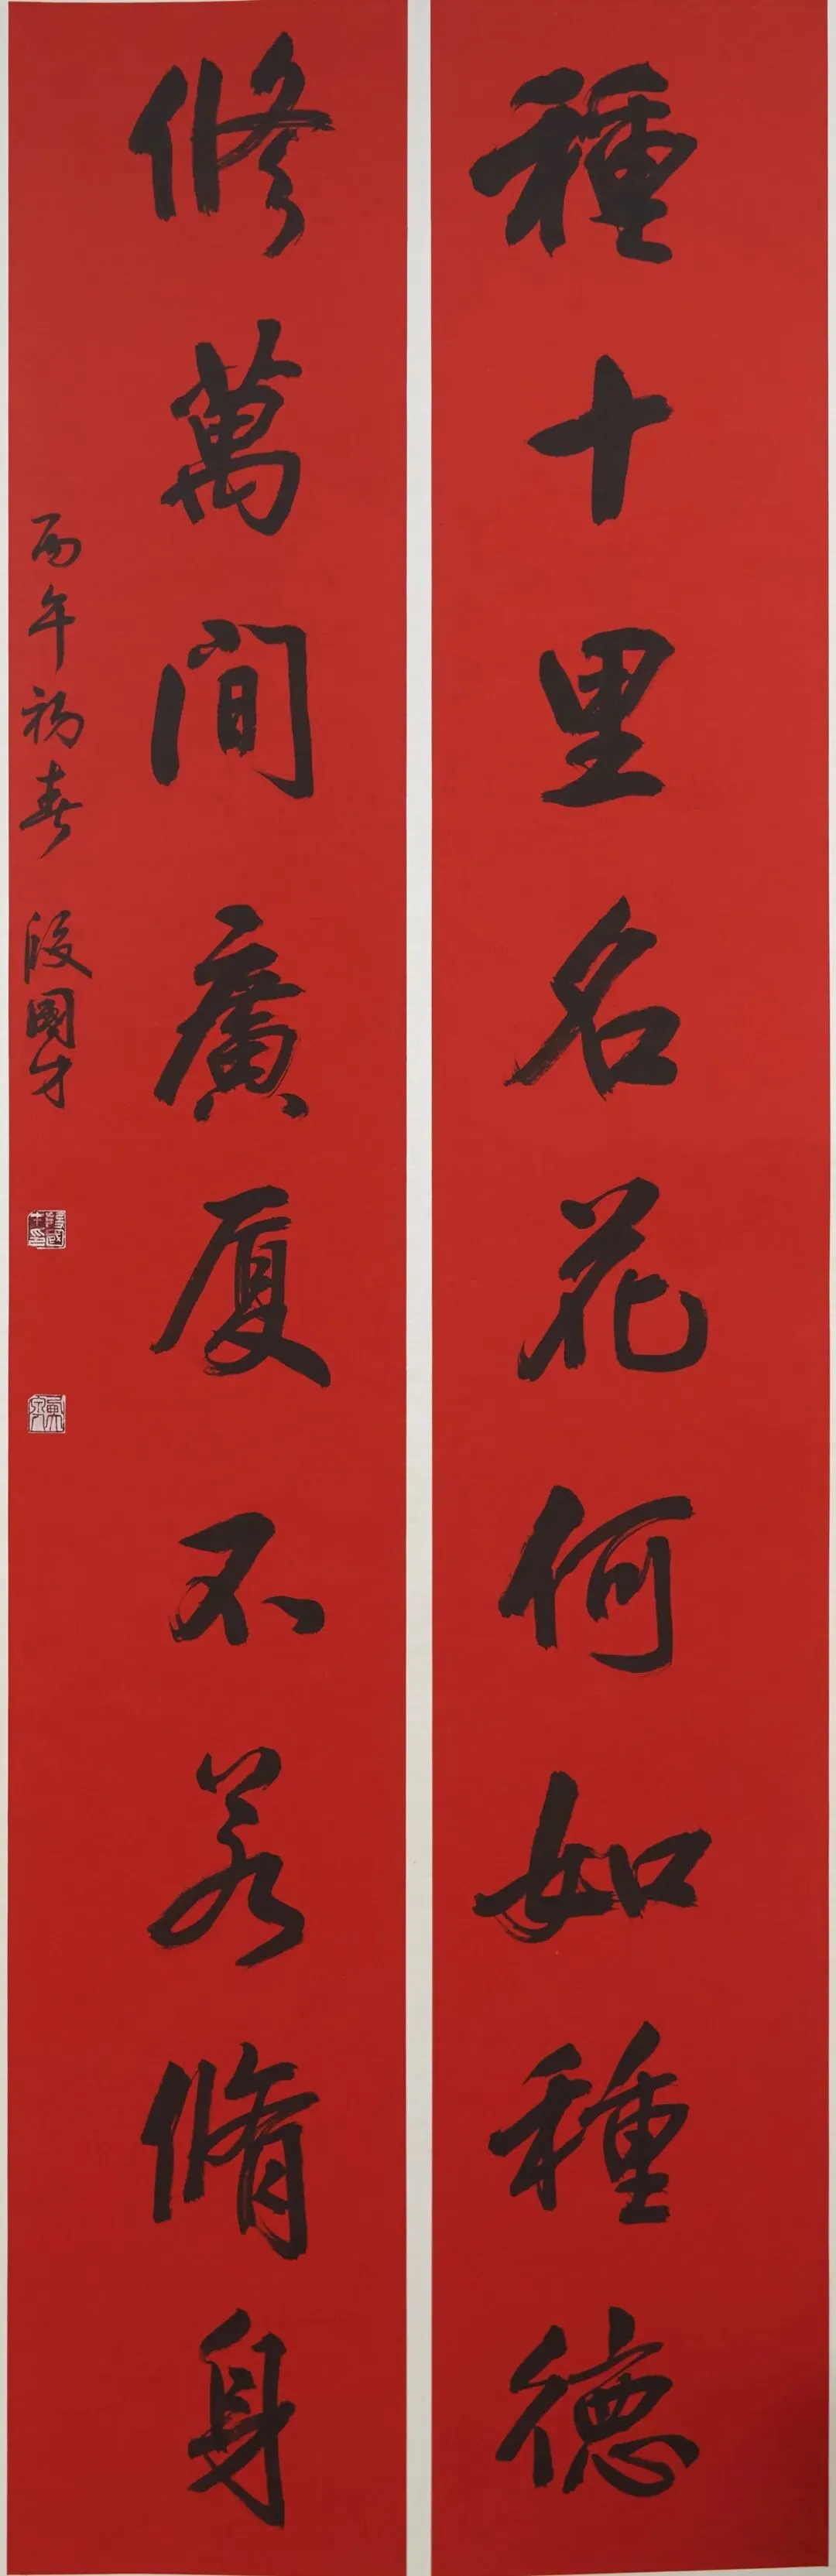 種十里名花何如種德
修萬間廣厦不若脩身
丙午初春 段國才